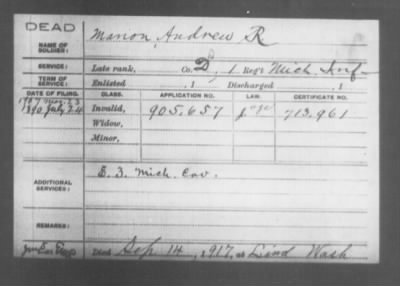 DEAD
NAME OF SOLDIER: Marion, Andrew R
SERVICE: Late rank, Co. D, 1 Reg't Mich. Inf.
TERM OF SERVICE: Enlisted , 1 Discharged , 1
DATE OF FILING. CLASS. APPLICATION NO. LAW. CERTIFICATE NO.
1907 Mar. 23
1890 July 24 Invalid, 905.657 age 713.961
Widow,
Minor,
ADDITIONAL SERVICES: E. 3. Mich. Cav.
REMARKS:
Died Sep 14, 1917, at Lind Wash